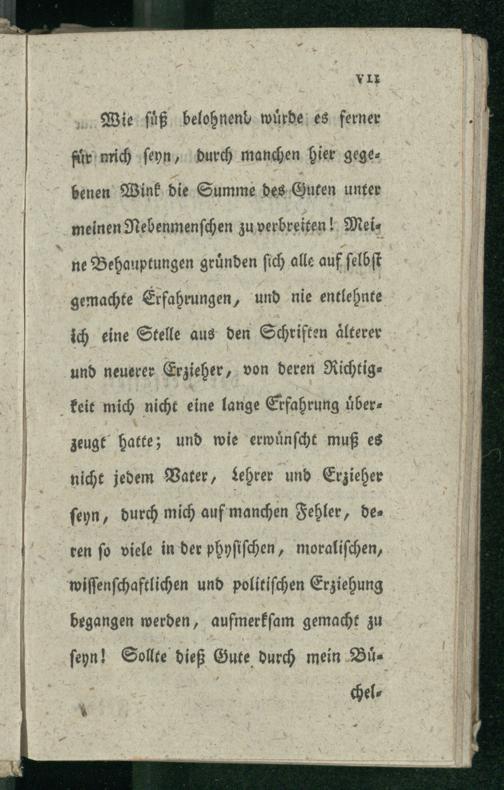 VII
Wie süß belohnend würde es ferner
für mich seyn, durch manchen hier gege-
benen Wink die Summe des Guten unter
meinen Nebenmenschen zu verbreiten! Mei-
ne Behauptungen gründen sich alle auf selbst
gemachte Erfahrungen, und nie entlehnte
ich eine Stelle aus den Schriften älterer
und neuerer Erzieher, von deren Richtig-
keit mich nicht eine lange Erfahrung über-
zeugt hatte; und wie erwünscht muß es
nicht jedem Vater, Lehrer und Erzieher
seyn, durch mich auf manchen Fehler, de-
ren so viele in der physischen, moralischen,
wissenschaftlichen und politischen Erziehung
begangen werden, aufmerksam gemacht zu
seyn! Sollte dieß Gute durch mein Bü-
chel-